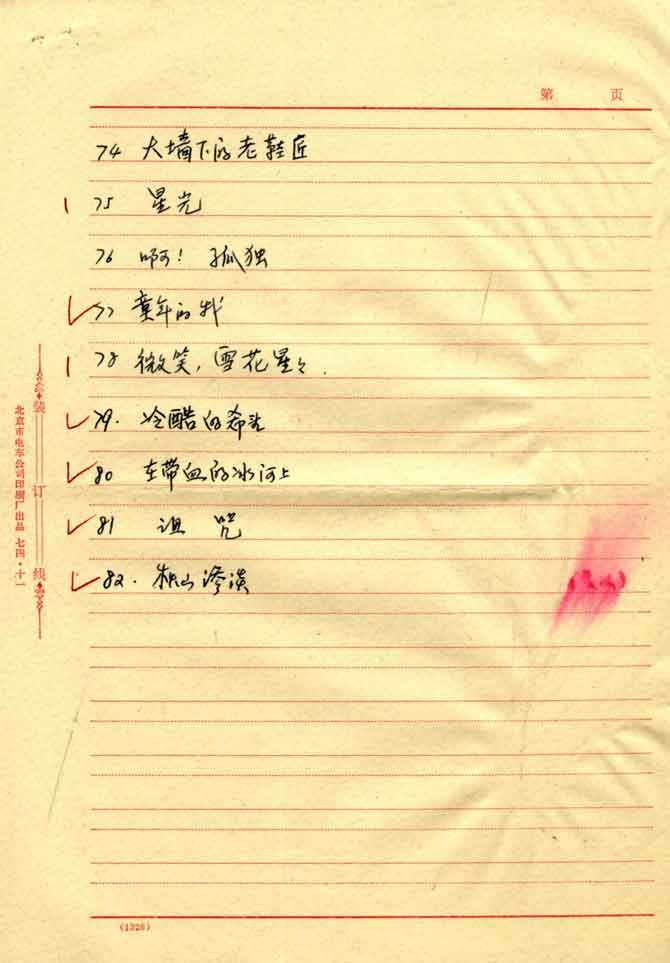 第 页
74 大墙下的老鞋匠
75 星光
76 啊! 孤独
77 童年的我
78 微笑,雪花星々.
79. 冷酷的希望
80 在带血的冰河上
81 诅咒
82.
装订线
北京市电车公司印刷厂出品 七四·十一
(1326)